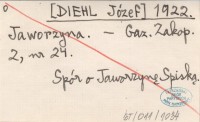 [DIEHL Józef] 1922.
Jaworzyna. – Gaz. Zakop.
2, nr 24.
Spór o Jaworzynę Spiską.